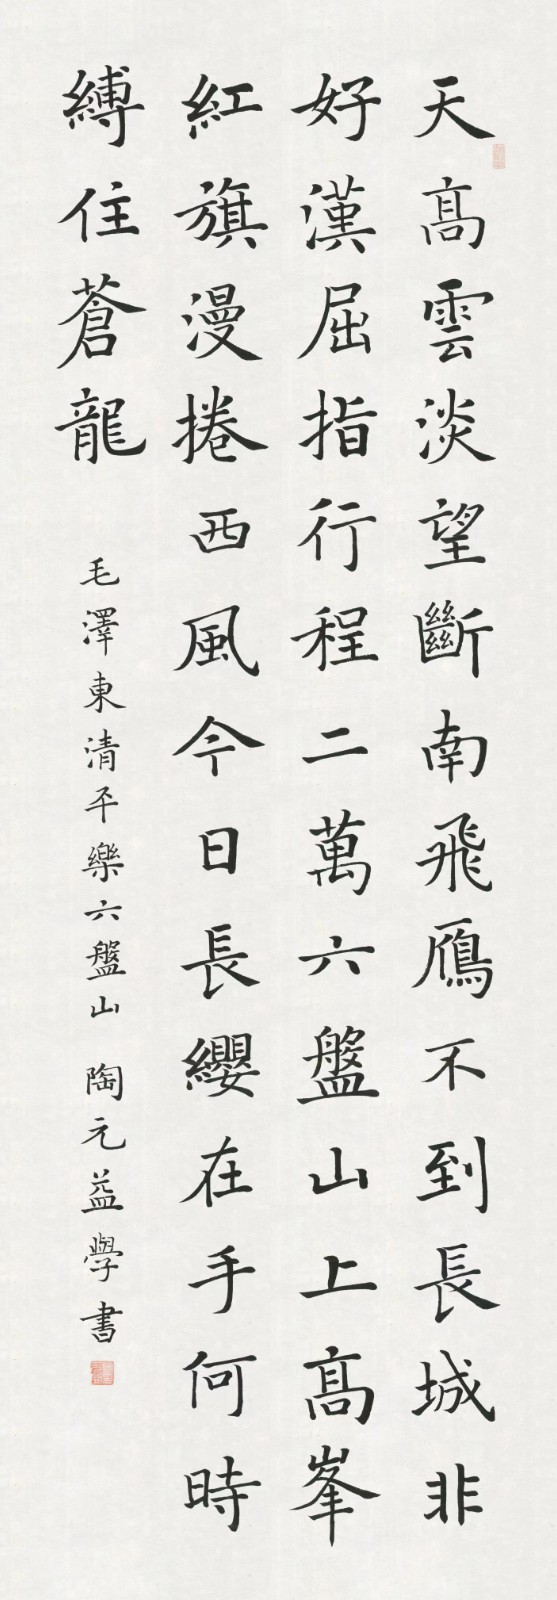 天高雲淡望斷南飛鴈不到長城非
好漢屈指行程二萬六盤山上高峯
紅旗漫捲西風今日長纓在手何時
縛住蒼龍
毛澤東清平樂六盤山 陶元益學書